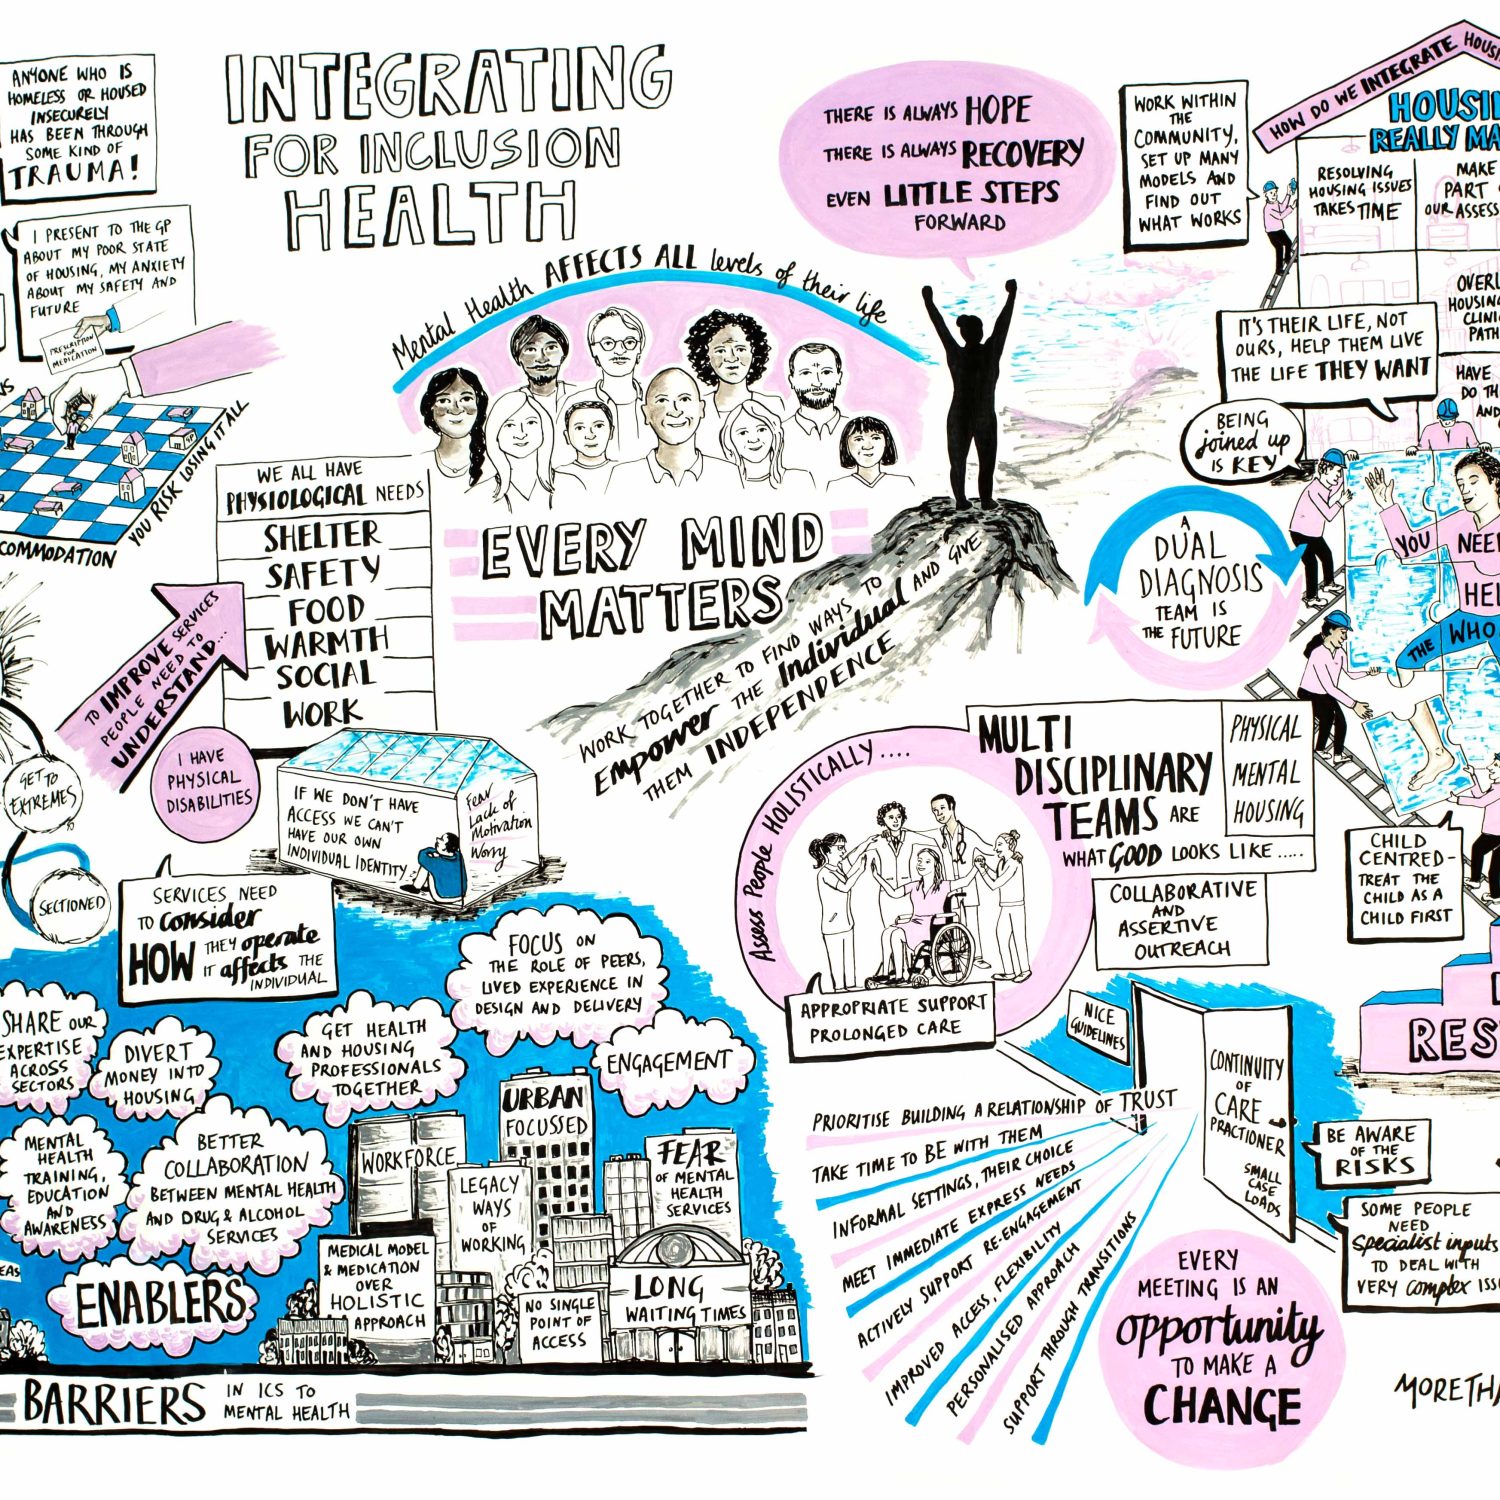 ANYONE WHO IS
HOMELESS OR HOUSED
INSECURELY
HAS BEEN THROUGH
SOME KIND OF
TRAUMA!
I PRESENT TO THE GP
ABOUT MY POOR STATE
OF HOUSING, MY ANXIETY
ABOUT MY SAFETY AND
FUTURE
PRESCRIPTION
FOR
MEDICATION
GP
YOU RISK LOSING IT ALL
INTEGRATING
FOR INCLUSION
HEALTH
Mental Health AFFECTS ALL levels of their life
EVERY MIND
MATTERS
THERE IS ALWAYS HOPE
THERE IS ALWAYS RECOVERY
EVEN LITTLE STEPS
FORWARD
WORK TOGETHER TO FIND WAYS TO
Empower THE Individual AND GIVE
THEM INDEPENDENCE
WORK WITHIN
THE
COMMUNITY,
SET UP MANY
MODELS AND
FIND OUT
WHAT WORKS
HOW DO WE INTEGRATE
REALLY
RESOLVING
HOUSING ISSUES
TAKES TIME
MAKE
PART
OUR
HAVE
DO
AND
IT'S THEIR LIFE, NOT
OURS, HELP THEM LIVE
THE LIFE THEY WANT
BEING
joined up
IS KEY
A
DUAL
DIAGNOSIS
TEAM IS
THE FUTURE
YOU NEED
THE
CHILD
CENTRED-
TREAT THE
CHILD AS A
CHILD FIRST
WE ALL HAVE
PHYSIOLOGICAL NEEDS
SHELTER
SAFETY
FOOD
WARMTH
SOCIAL
WORK
TO IMPROVE SERVICES
PEOPLE NEED TO
UNDERSTAND...
I HAVE
PHYSICAL
DISABILITIES
GET TO
EXTREMES
SECTIONED
IF WE DON'T HAVE
ACCESS WE CAN'T
HAVE OUR OWN
INDIVIDUAL IDENTITY
Fear
Lack of
Motivation
Worry
SERVICES NEED
TO consider
HOW THEY operate
IT affects THE
INDIVIDUAL
SHARE OUR
EXPERTISE
ACROSS
SECTORS
DIVERT
MONEY INTO
HOUSING
GET HEALTH
AND HOUSING
PROFESSIONALS
TOGETHER
FOCUS ON
THE ROLE OF PEERS,
LIVED EXPERIENCE IN
DESIGN AND DELIVERY
ENGAGEMENT
MENTAL
HEALTH
TRAINING,
EDUCATION
AND
AWARENESS
BETTER
COLLABORATION
BETWEEN MENTAL HEALTH
AND DRUG & ALCOHOL
SERVICES
ENABLERS
WORKFORCE
URBAN
FOCUSSED
LEGACY
WAYS
OF
WORKING
FEAR
OF MENTAL
HEALTH
SERVICES
MEDICAL MODEL
& MEDICATION
OVER
HOLISTIC
APPROACH
NO SINGLE
POINT OF
ACCESS
LONG
WAITING TIMES
BARRIERS IN ICS TO
MENTAL HEALTH
Assess People HOLISTICALLY ....
MULTI
DISCIPLINARY
TEAMS ARE
WHAT GOOD LOOKS LIKE .....
PHYSICAL
MENTAL
HOUSING
COLLABORATIVE
AND
ASSERTIVE
OUTREACH
APPROPRIATE SUPPORT
PROLONGED CARE
NICE
GUIDELINES
CONTINUITY
OF
CARE
PRACTIONER
SMALL
CASE
LOADS
PRIORITISE BUILDING A RELATIONSHIP OF TRUST
TAKE TIME TO BE WITH THEM
INFORMAL SETTINGS, THEIR CHOICE
MEET IMMEDIATE EXPRESS NEEDS
ACTIVELY SUPPORT RE-ENGAGEMENT
IMPROVED ACCESS, FLEXIBILITY
PERSONALISED APPROACH
SUPPORT THROUGH TRANSITIONS
BE AWARE
OF THE
RISKS
SOME PEOPLE
NEED
Specialist inputs
TO DEAL WITH
VERY complex
EVERY
MEETING IS AN
opportunity
TO MAKE A
CHANGE